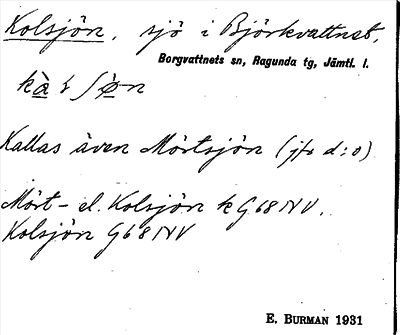 Kolsjön, sjö i Björkvattnet,
Borgvattnets sn, Ragunda tg, Jämtl. l.
Kallas även Mörtsjön (jfr d:o)
Mört- el. Kolsjön k G68 NV,
Kolsjön G68 NV
E. BURMAN 1931